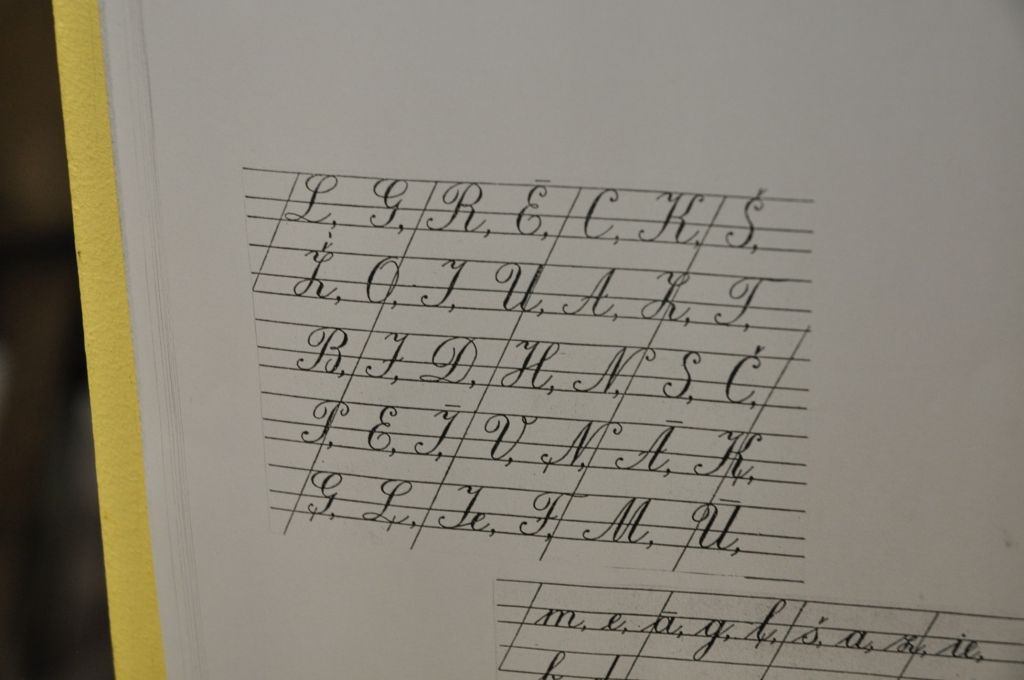 L, G, R, Ē, C, K, Š,
Ž, O, J, U, A, Z, T,
B, I, D, H, N, S, Č,
P, E, Ī, V, Ņ, Ā, Ķ,
Ģ, Ļ, Ie, F, M, Ū,
m, e, ā, g, ļ, š, a, z, ie,